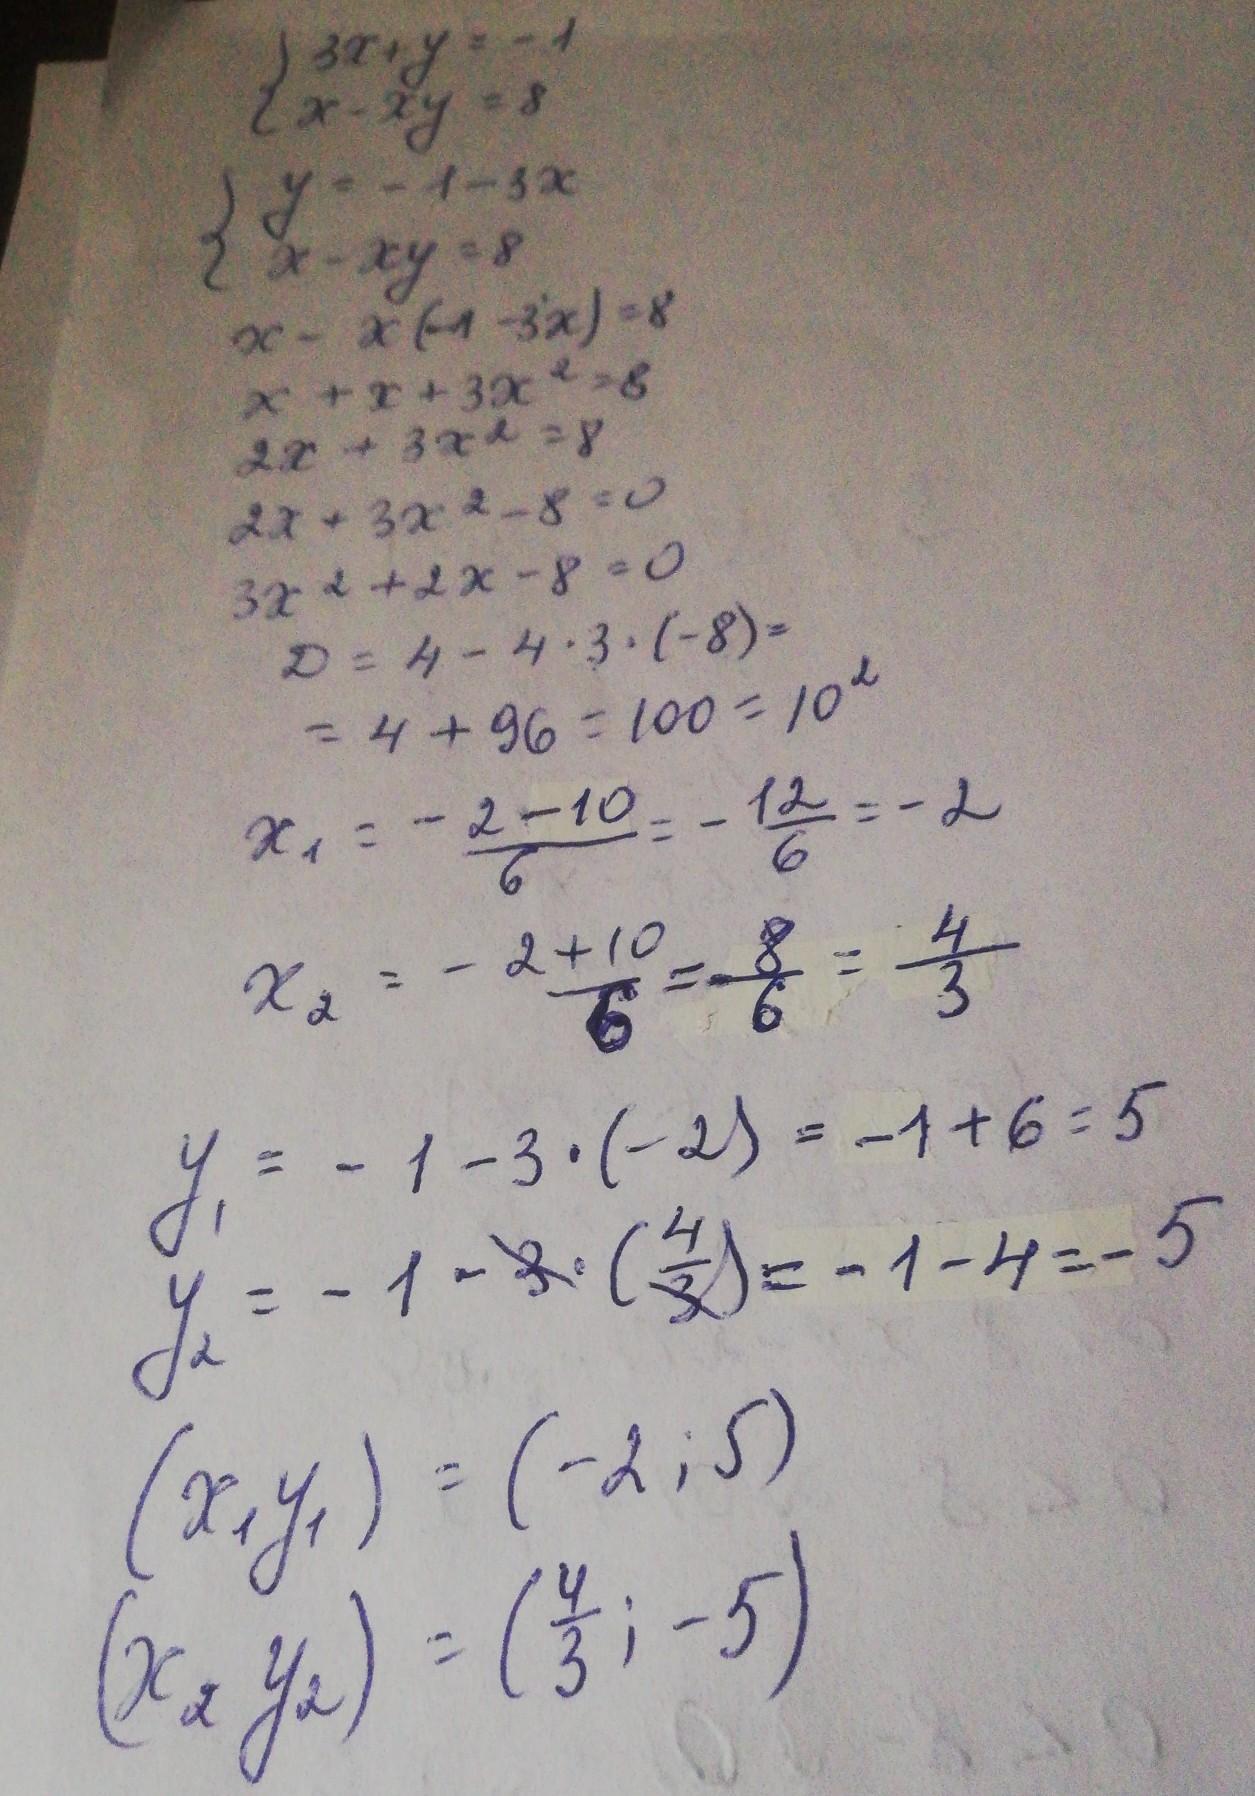 { 3x + y = -1
{ x - xy = 8
{ y = -1 - 3x
{ x - xy = 8
x - x(-1 - 3x) = 8
x + x + 3x² = 8
2x + 3x² = 8
2x + 3x² - 8 = 0
3x² + 2x - 8 = 0
D = 4 - 4 · 3 · (-8) =
= 4 + 96 = 100 = 10²
x₁ = - 2 - 10 / 6 = - 12/6 = - 2
x₂ = - 2 + 10 / 6 = - 8/6 = 4/3
y₁ = - 1 - 3 · (-2) = -1 + 6 = 5
y₂ = - 1 - 3 · (4/3) = - 1 - 4 = - 5
(x₁ y₁) = (-2 ; 5)
(x₂ y₂) = (4/3 ; -5)